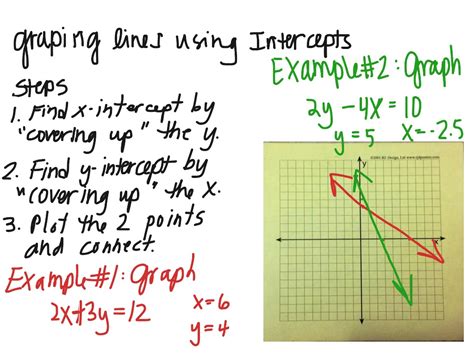 graping lines using Intercepts
Steps
1. Find x-intercept by
"covering up" the y.
2. Find y-intercept by
"covering up" the x.
3. Plot the 2 points
and connect.
Example#1: Graph
2x+3y=12
x=6
y=4
Example#2: Graph
2y-4x=10
y=5 x=-2.5
y
x